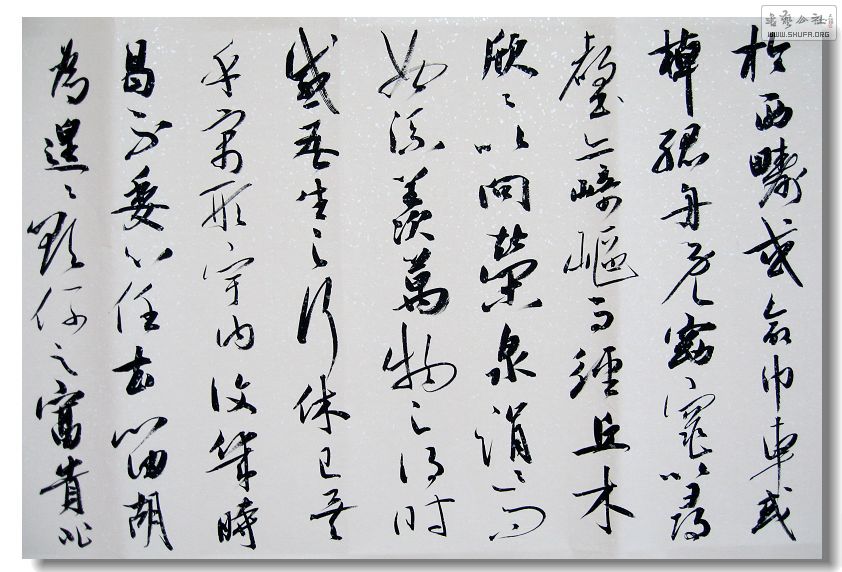 於西疇或命巾車或
棹孤舟既窈窕以尋
壑亦崎嶇而經丘木
欣〻以向榮泉涓〻而
始流羨萬物之得時
感吾生之行休已矣
乎寓形宇内復幾時
曷不委心任去留胡
為遑〻欲何之富貴非
書藝公社
WWW.SHUFA.ORG